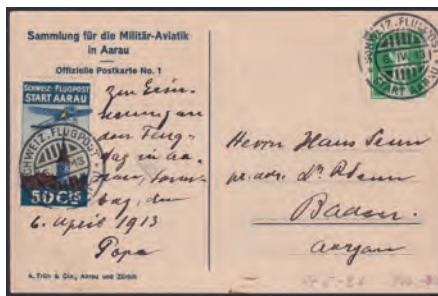 Sammlung für die Militär-Aviatik
in Aarau
Offizielle Postkarte No. 1
SCHWEIZ. FLUGPOST
START AARAU
50 Cts
SCHWEIZ. FLUGPOST
13
zur Erin-
nerung an
den Flug-
tag in Aa-
rau, Sonn-
tag, den
6. April 1913
Papa
A. Trüb & Cie., Aarau und Zürich
SCHWEIZ. FLUGPOST
6. IV. 13
START AARAU
Herrn Hans Senn
pr. adr. Dr.
Baden.
Aargau